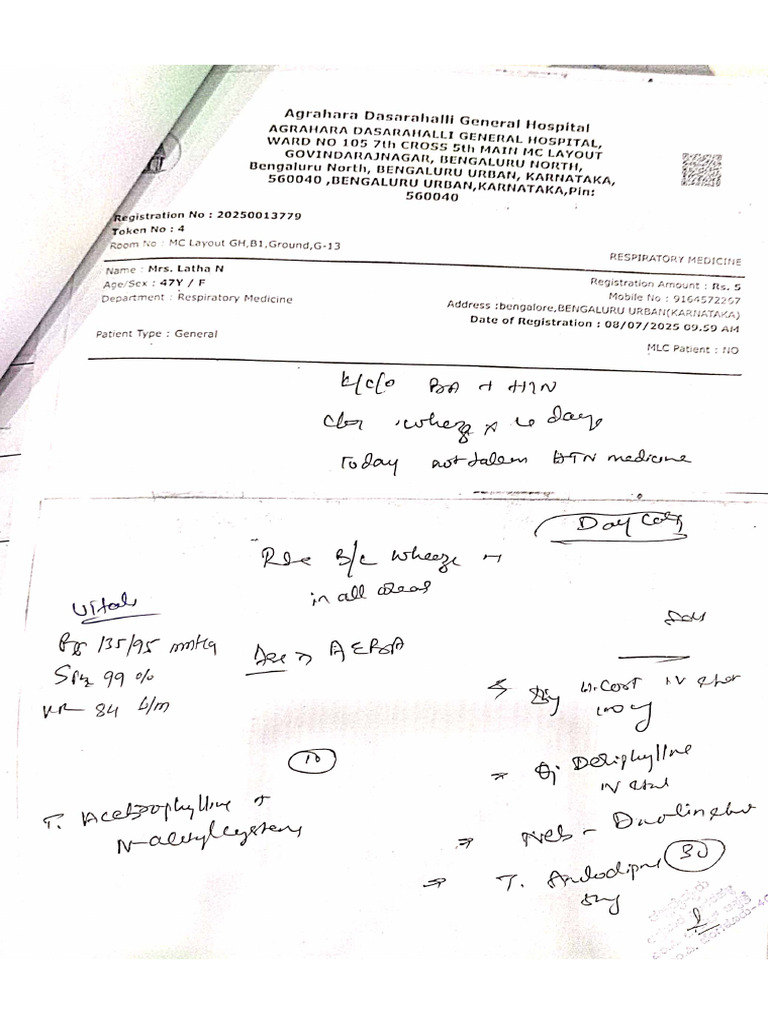 Agrahara Dasarahalli General Hospital
AGRAHARA DASARAHALLI GENERAL HOSPITAL,
WARD NO 105 7th CROSS 5th MAIN MC LAYOUT
GOVINDARAJNAGAR, BENGALURU NORTH,
Bengaluru North, BENGALURU URBAN, KARNATAKA,
560040 ,BENGALURU URBAN,KARNATAKA,Pin:
560040
Registration No : 20250013779
Token No : 4
Room No : MC Layout GH,B1,Ground,G-13
RESPIRATORY MEDICINE
Name : Mrs. Latha N
Age/Sex : 47Y / F
Department : Respiratory Medicine
Registration Amount : Rs. 5
Mobile No : 9164572267
Address :bengalore,BENGALURU URBAN(KARNATAKA)
Date of Registration : 08/07/2025 09.59 AM
Patient Type : General
MLC Patient : NO
K/c/o BA + HTN
wheeze x days
Today not taken HTN medicine
Day Care
B/L wheeze +
in all areas
Vitals
135/95 mmHg
SpO2 99 %
84 b/m
AEBA
H.Cort IV stat
100
Deriphylline
IV stat
Neb - Duolin stat
T. Amlodipine 30
5mg
10
T. Acebrophylline +
N-acetylcysteine